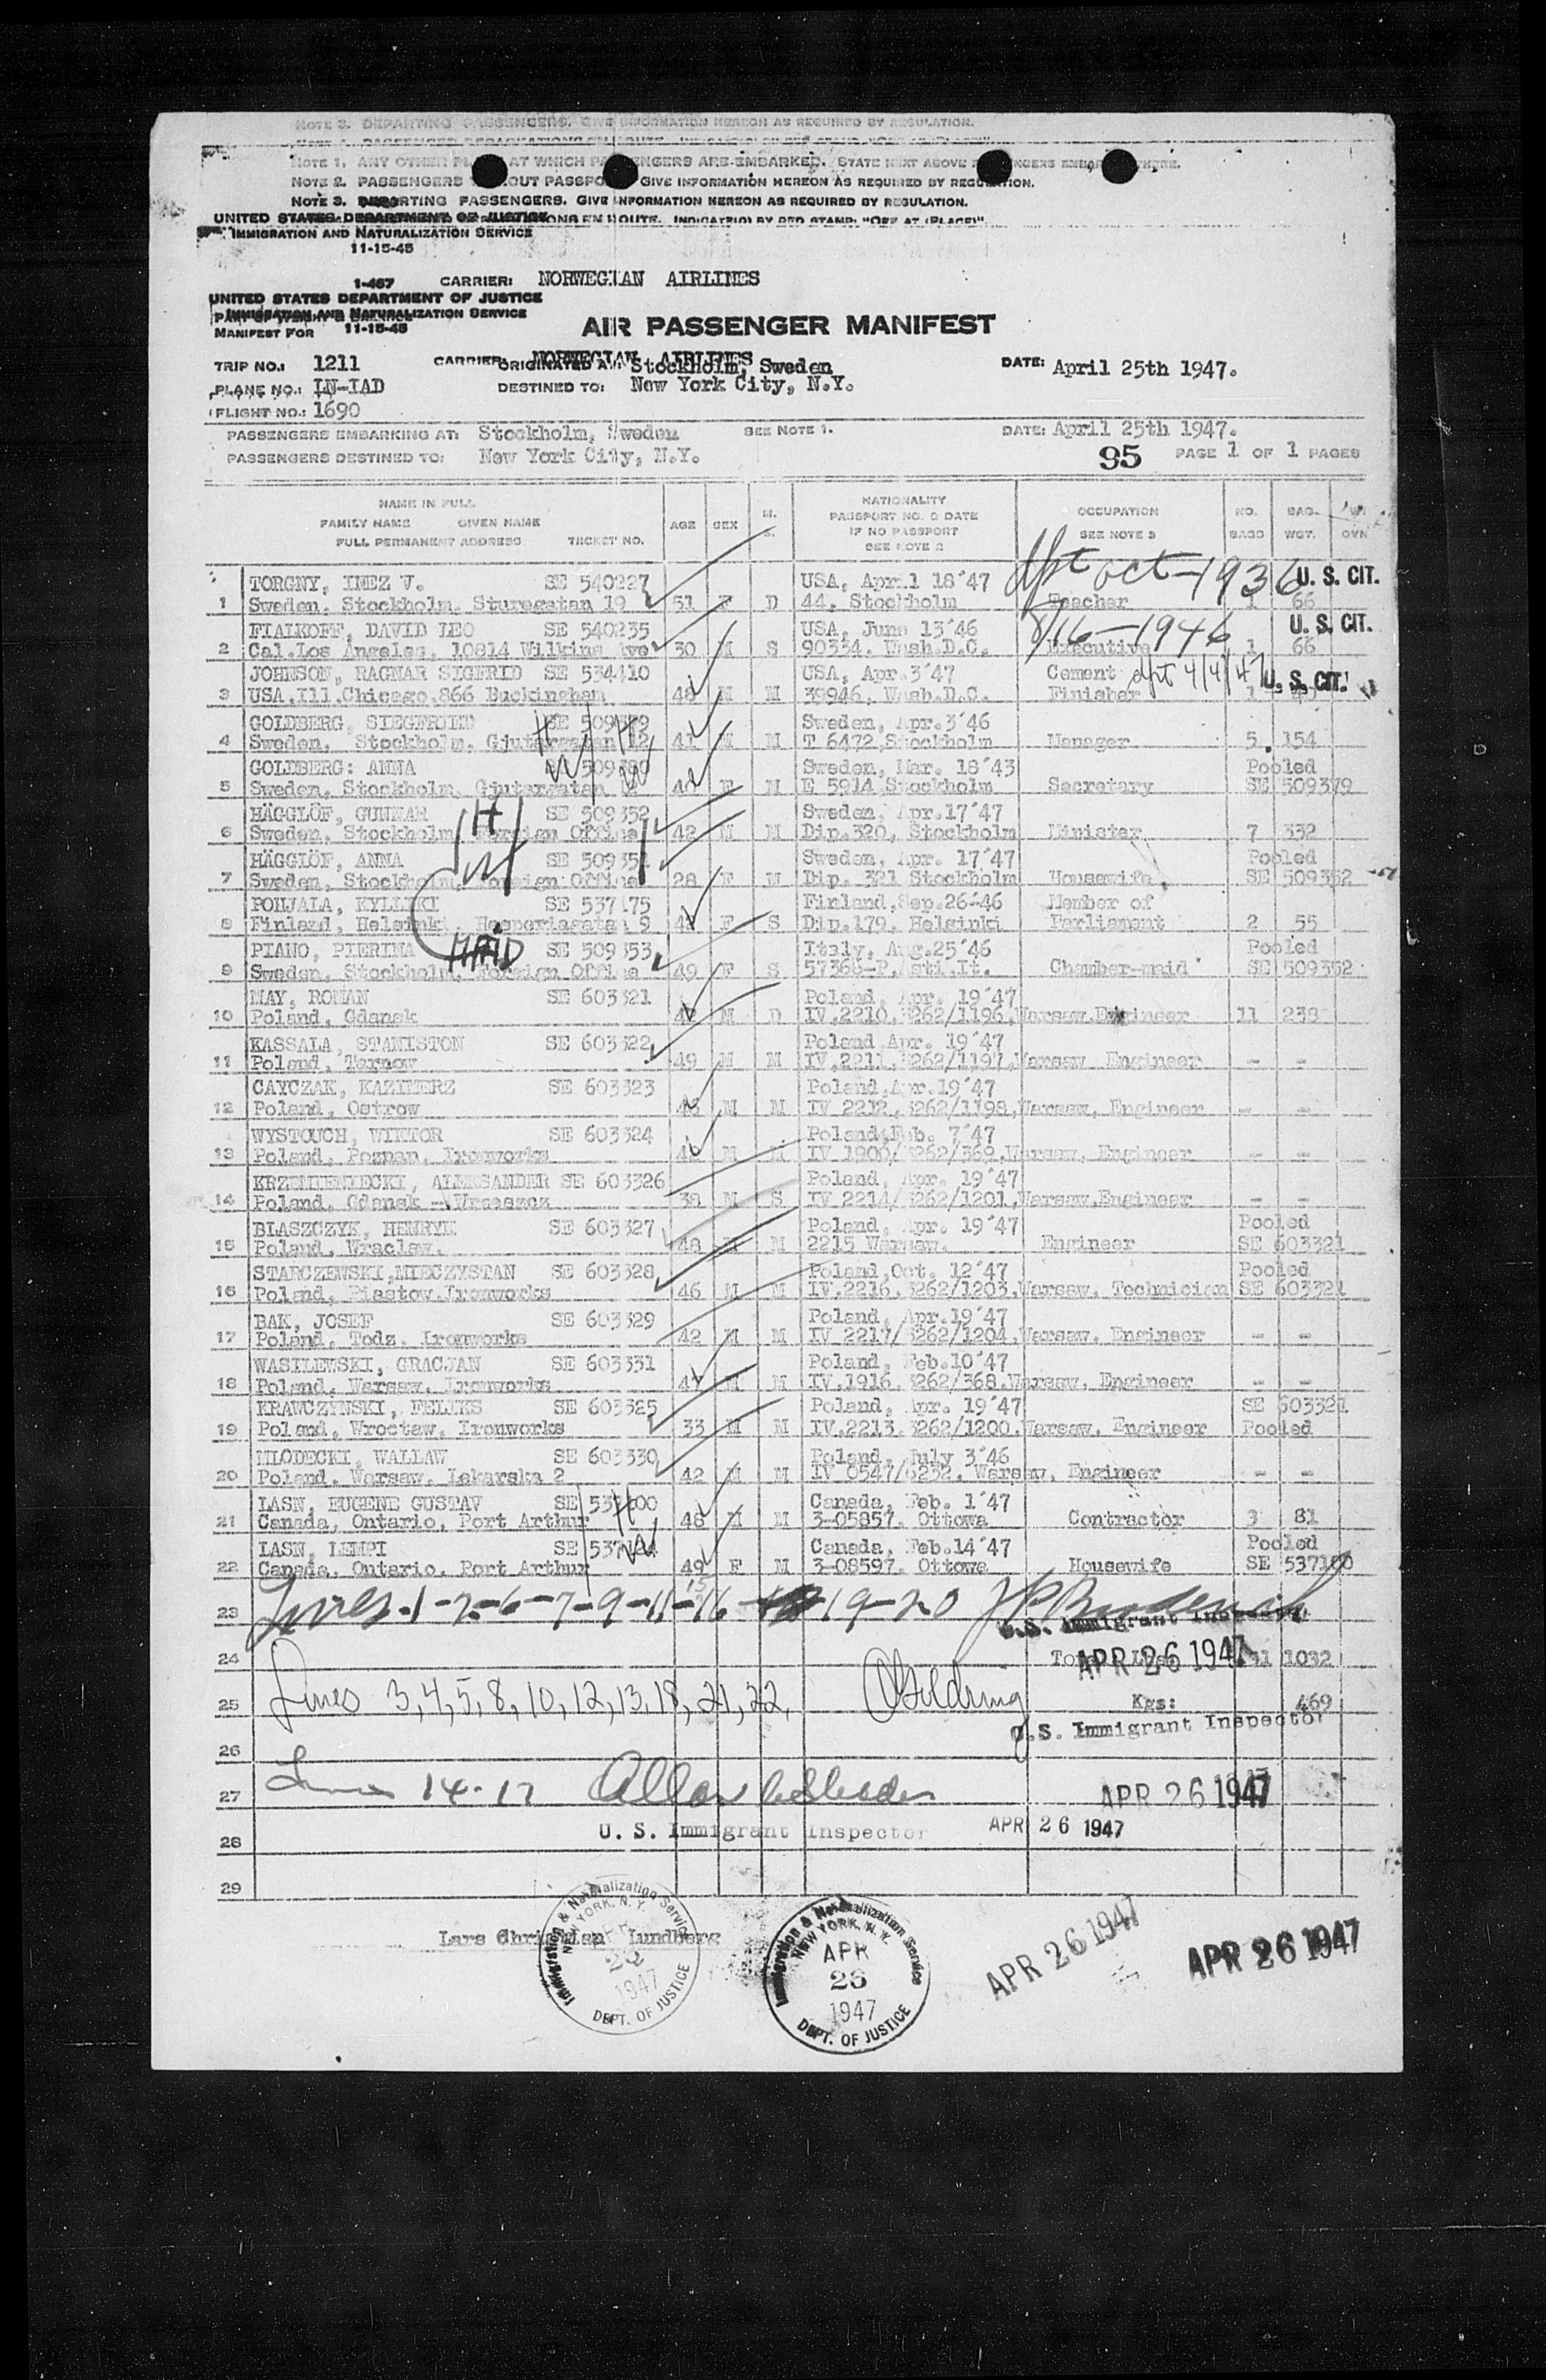 NOTE 3. DEPARTING PASSENGERS. GIVE INFORMATION HEREON AS REQUIRED BY REGULATION.
NOTE 1. ANY OTHER AT WHICH PASSENGERS ARE EMBARKED. STATE NEXT ABOVE
NOTE 2. PASSENGERS GIVE INFORMATION HEREON AS REQUIRED BY REGULATION.
NOTE 3. DEPARTING PASSENGERS. GIVE INFORMATION HEREON AS REQUIRED BY REGULATION.
UNITED STATES DEPARTMENT OF JUSTICE INDICATED BY RED STAMP: "OFF AT (PLACE)".
IMMIGRATION AND NATURALIZATION SERVICE
11-15-45
1-467 CARRIER: NORWEGIAN AIRLINES
UNITED STATES DEPARTMENT OF JUSTICE
IMMIGRATION AND NATURALIZATION SERVICE
MANIFEST FOR 11-15-45 AIR PASSENGER MANIFEST
TRIP NO.: 1211 CARRIER: NORWEGIAN AIRLINES ORIGINATED AT: Stockholm, Sweden DATE: April 25th 1947.
PLANE NO.: LN-IAD DESTINED TO: New York City, N.Y.
FLIGHT NO.: 1690
PASSENGERS EMBARKING AT: Stockholm, Sweden SEE NOTE 1. DATE: April 25th 1947.
PASSENGERS DESTINED TO: New York City, N.Y. 95 PAGE 1 OF 1 PAGES
NAME IN FULL NATIONALITY
FAMILY NAME GIVEN NAME AGE SEX M. S. PASSPORT NO. & DATE OCCUPATION NO. BAG.
FULL PERMANENT ADDRESS TICKET NO. IF NO PASSPORT SEE NOTE 3 BAGS WGT. OVN
SEE NOTE 2
TORGNY, INEZ V. SE 540227 USA, April 18'47 oct-1936 U. S. CIT.
1 Sweden, Stockholm, Sturegatan 19 51 F D 44, Stockholm Teacher 1 66
FIALKOFF, DAVID LEO SE 540235 USA, June 13'46 8/16-1946 U. S. CIT.
2 Cal.Los Angeles, 10814 Wilkins Ave 30 M S 90334, Wash.D.C. Executive 1 66
JOHNSON, RAGNAR SIGFRID SE 534410 USA, Apr.3'47 Cement 4/4/47 U. S. CIT.
3 USA.Ill.Chicago.866 Buckingham 48 M M 39946, Wash.D.C. Finisher 1
GOLDBERG, SIEGFRIED SE 509379 Sweden, Apr.3'46
4 Sweden, Stockholm, Gjutargatan 12 41 M M T 6472 Stockholm Manager 5 154
GOLDBERG: ANNA SE 509380 Sweden, Mar. 18'43 Pooled
5 Sweden, Stockholm, Gjutargatan F M E 5914 Stockholm Secretary SE 509379
HÄGGLÖF, GUNNAR SE 509352 Sweden, Apr.17'47
6 Sweden, Stockholm, Foreign Office 42 M M Dip.320, Stockholm Minister 7 332
HÄGGLÖF, ANNA SE 509351 Sweden, Apr. 17'47 Pooled
7 Sweden, Stockholm, Foreign Office 28 F M Dip. 321 Stockholm Housewife SE 509352
POHJALA, KYLLIKI SE 537175 Finland,Sep.26-46 Member of
8 Finland, Helsinki, Hesperiagatan 9 F S Dip.179, Helsinki Parliament 2 55
PIANO, PIERINA MAID SE 509353 Italy, Aug.25'46 Pooled
9 Sweden, Stockholm, Foreign Office 49 F S 57368-P.Asti.It. Chamber-maid SE 509352
MAY, ROMAN SE 603321 Poland, Apr. 19'47
10 Poland, Gdansk M D IV.2210.3262/1196,Warsaw.Engineer 11 238
KASSALA, STANISTON SE 603322 Poland,Apr. 19'47
11 Poland, Tarnow 49 M M IV.2211.3262/1197,Warsaw, Engineer - -
CAYCZAK, KAZIMERZ SE 603323 Poland,Apr.19'47
12 Poland, Ostrow M M IV 2212,3262/1198,Warsaw, Engineer - -
WYSTOUCH, WIKTOR SE 603324 Poland,Feb. 7'47
13 Poland, Poznan, Ironworks M M IV 1900/3262/369,Warsaw, Engineer - -
KRZEMIENIECKI, ALEKSANDER SE 603326 Poland, Apr. 19'47
14 Poland, Gdansk - Wrzeszcz 38 M S IV 2214/3262/1201,Warsaw,Engineer - -
BLASZCZYK, HENRYK SE 603327 Poland, Apr. 19'47 Pooled
15 Poland, Wraclaw. 48 M M 2215 Warsaw. Engineer SE 603321
STARCZEWSKI,MIECZYSTAN SE 603328 Poland,Oct. 12'47 Pooled
16 Poland, Piastow.Ironworks 46 M M IV.2216.3262/1203,Warsaw, Technician SE 603321
BAK, JOSEF SE 603329 Poland, Apr.19'47
17 Poland, Todz. Ironworks 42 M M IV 2217/3262/1204,Warsaw. Engineer - -
WASILEWSKI, GRACJAN SE 603331 Poland, Feb.10'47
18 Poland, Warsaw, Ironworks M M IV.1916.3262/368.Warsaw. Engineer - -
KRAWCZYNSKI, FELIKS SE 603325 Poland, Apr. 19'47 SE 603321
19 Poland, Wroctaw, Ironworks 33 M M IV.2213.3262/1200.Warsaw. Engineer Pooled
MLODECKI, WALLAW SE 603330 Poland, July 3'46
20 Poland, Warsaw, Lakarska 2 42 M M IV 0547/6232, Warsaw, Engineer - -
LASN, EUGENE GUSTAV SE H Canada, Feb. 1'47
21 Canada, Ontario, Port Arthur 48 M M 3-05857. Ottowa Contractor 3 81
LASN, LEMPI SE W Canada, Feb.14'47 Pooled
22 Canada, Ontario, Port Arthur 49 F M 3-08597. Ottowa Housewife SE 537180
23 Lines-1-2-6-7-9-11-15-16-19-20
U.S. Immigrant Inspector
24 APR 26 1947 31 1032
25 Lines 3,4,5,8,10,12,13,18,21,22, Kgs: 469
U.S. Immigrant Inspector
26
27 Lines 14-17 APR 26 1947
28 U. S. Immigrant Inspector APR 26 1947
29
Lars Christian Lundberg
Immigration & Naturalization Service NEW YORK, N. Y. 1947 DEPT. OF JUSTICE
Immigration & Naturalization Service NEW YORK, N. Y. APR 26 1947 DEPT. OF JUSTICE
APR 26 1947
APR 26 1947